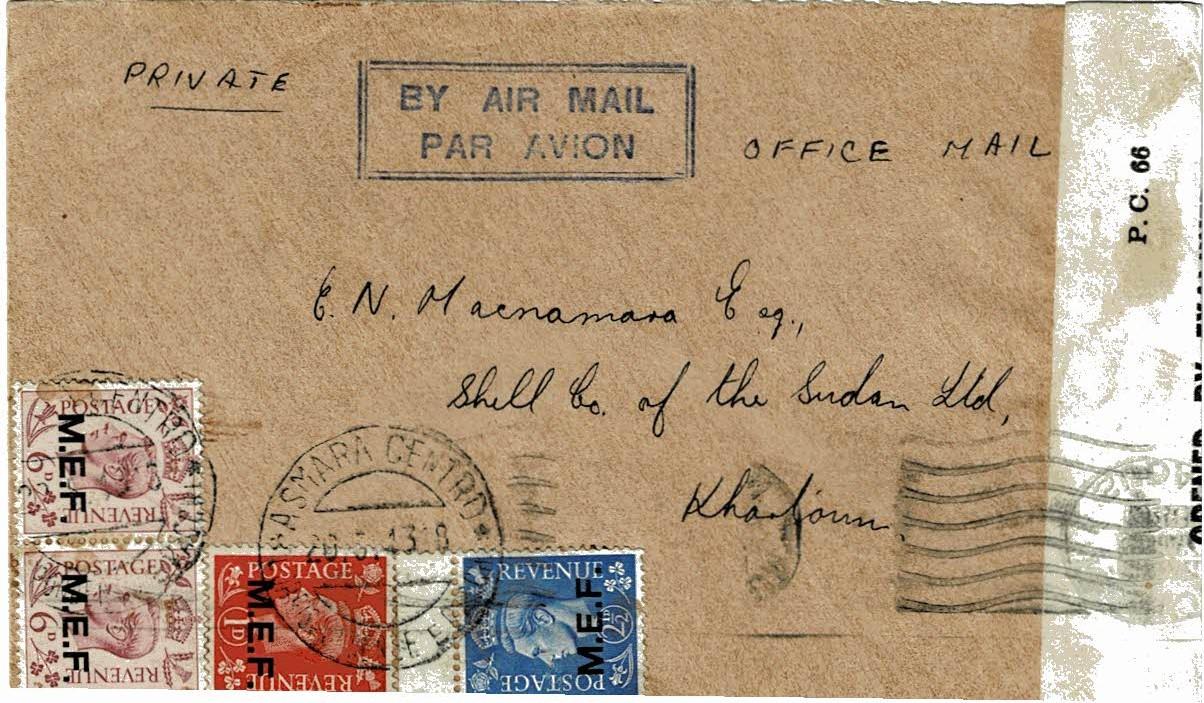 PRIVATE
BY AIR MAIL
PAR AVION
OFFICE MAIL
P.C. 66
OPENED BY
E. N. Macnamara Esq.,
Shell Co. of the Sudan Ltd,
Khartoum
POSTAGE
6D
M.E.F.
REVENUE
6D
M.E.F.
REVENUE
ASMARA CENTRO
POSTAGE
1D
M.E.F.
REVENUE
REVENUE
2½D
M.E.F.
POSTAGE